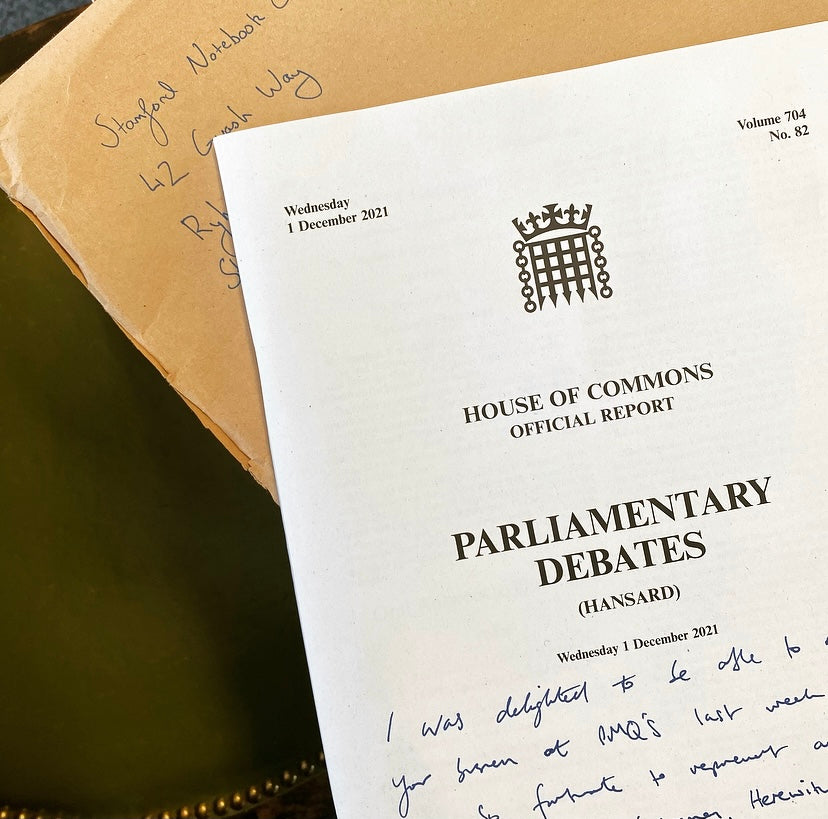 Stamford Notebook
42 Gwash Way
Ryh
Volume 704
No. 82
Wednesday
1 December 2021
HOUSE OF COMMONS
OFFICIAL REPORT
PARLIAMENTARY
DEBATES
(HANSARD)
Wednesday 1 December 2021
I was delighted to be able to
your business at PMQ's last week
fortunate to represent
Herewith